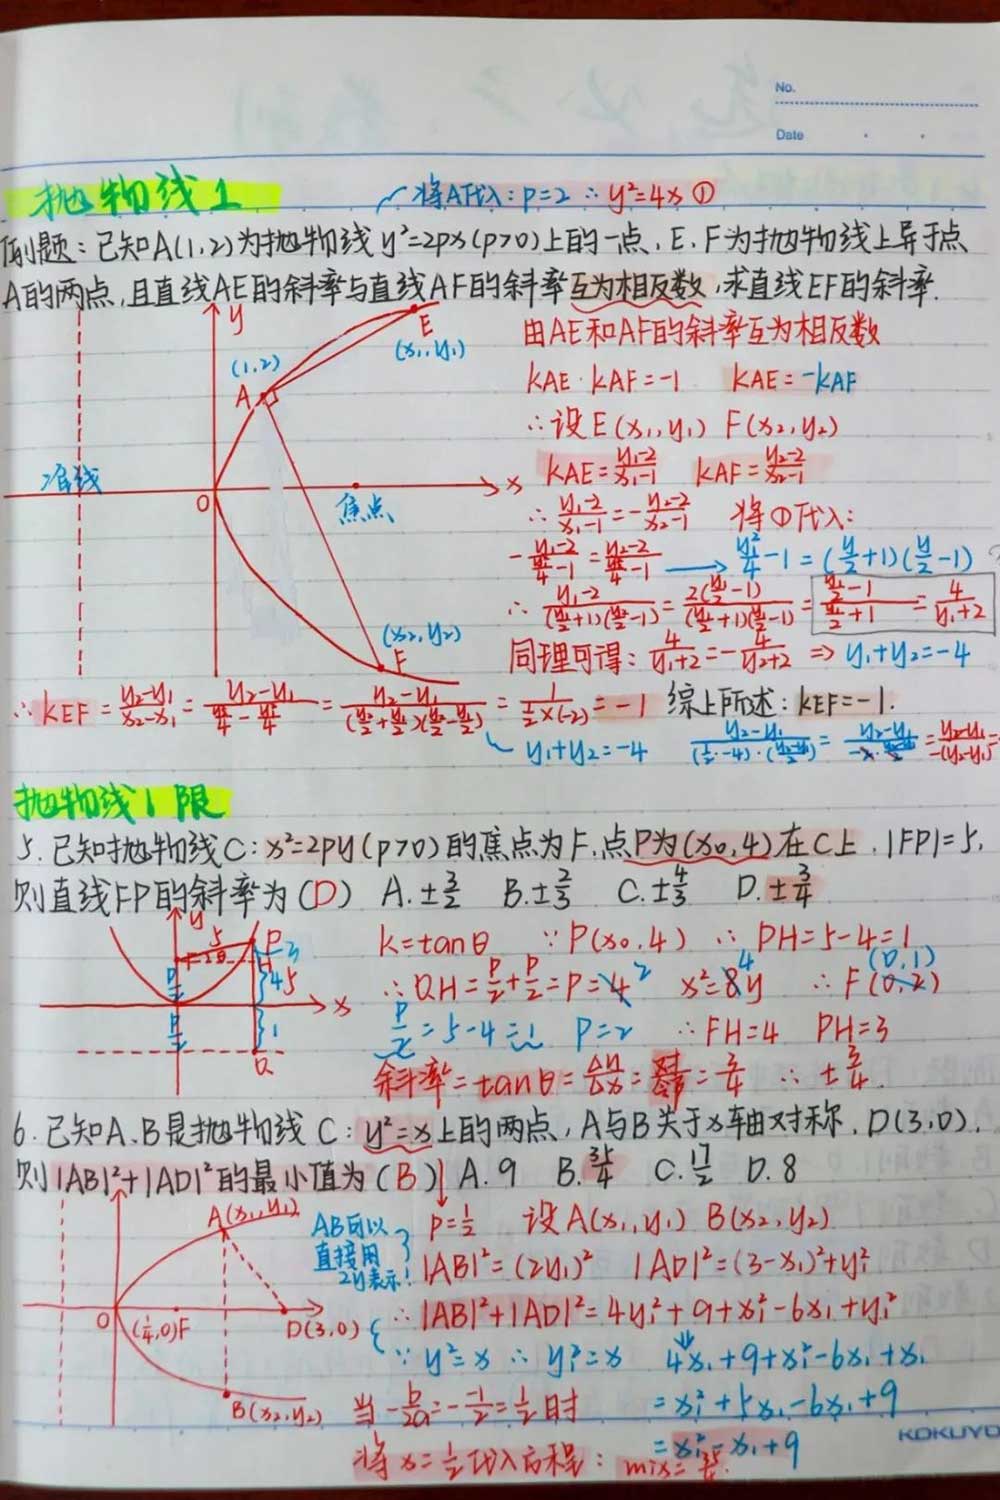 No.
Date
抛物线1
将A代入:p=2 ∴ y²=4x ①
例题:已知A(1,2)为抛物线y²=2px(p>0)上的一点,E、F为抛物线上异于点
A的两点,且直线AE的斜率与直线AF的斜率互为相反数,求直线EF的斜率.
y
E
(x₁,y₁)
(1,2)
A
准线
O
x
焦点
(x₂,y₂)
F
由AE和AF的斜率互为相反数
kAE·kAF=-1 kAE=-kAF
∴设E(x₁,y₁) F(x₂,y₂)
kAE=(y₁-2)/(x₁-1) kAF=(y₂-2)/(x₂-1)
∴ (y₁-2)/(x₁-1)=-(y₂-2)/(x₂-1) 将①代入:
-(y₁-2)/(y₁²/4-1)=(y₂-2)/(y₂²/4-1) → y₁²/4-1=(y/2+1)(y/2-1)
∴ (y₁-2)/((y₁/2+1)(y₁/2-1))=2(y₁/2-1)/((y₁/2+1)(y₁/2-1))=(y₁/2-1)/(y₁/2+1)=4/(y₁+2)
同理可得:4/(y₁+2)=-4/(y₂+2) ⇒ y₁+y₂=-4
∴ kEF=(y₂-y₁)/(x₂-x₁)=(y₂-y₁)/(y₂²/4-y₁²/4)=(y₂-y₁)/((y₂/2+y₁/2)(y₂/2-y₁/2))=1/(½×(-2))=-1 综上所述:kEF=-1.
y₁+y₂=-4 (y₂-y₁)/((½·-4)·((y₂-y₁)/2))
抛物线1限
5.已知抛物线C:x²=2py(p>0)的焦点为F,点P为(x₀,4)在C上,|FP|=5,
则直线FP的斜率为(D) A.±3/2 B.±2/3 C.±4/3 D.±3/4
y
5
P
F
θ
H
3
4
5
1
p/2
p/2
x
Q
k=tanθ ∵P(x₀,4) ∴PH=5-4=1
∴QH=p/2+p/2=p=4 2 x²=8y 4 ∴F(0,2) (0,1)
p/2=5-4=1 p=2 ∴FH=4 PH=3
斜率=tanθ=Δy/Δx=对/邻=3/4 ∴±3/4.
6.已知A、B是抛物线C:y²=x上的两点,A与B关于x轴对称,D(3,0),
则|AB|²+|AD|²的最小值为(B) A.9 B.35/4 C.17/2 D.8
A(x₁,y₁)
O
(¼,0)F
D(3,0)
B(x₂,y₂)
AB可以
直接用
2y表示!
p=½ 设A(x₁,y₁) B(x₂,y₂)
|AB|²=(2y₁)² |AD|²=(3-x₁)²+y₁²
∴|AB|²+|AD|²=4y₁²+9+x₁²-6x₁+y₁²
∵y²=x ∴y₁²=x 4x₁+9+x₁²-6x₁+x₁
当-b/2a=-(-1)/2=½时 =x₁²+5x₁-6x₁+9
=x₁²-x₁+9
将x=½代入方程: min=35/4.
KOKUYO